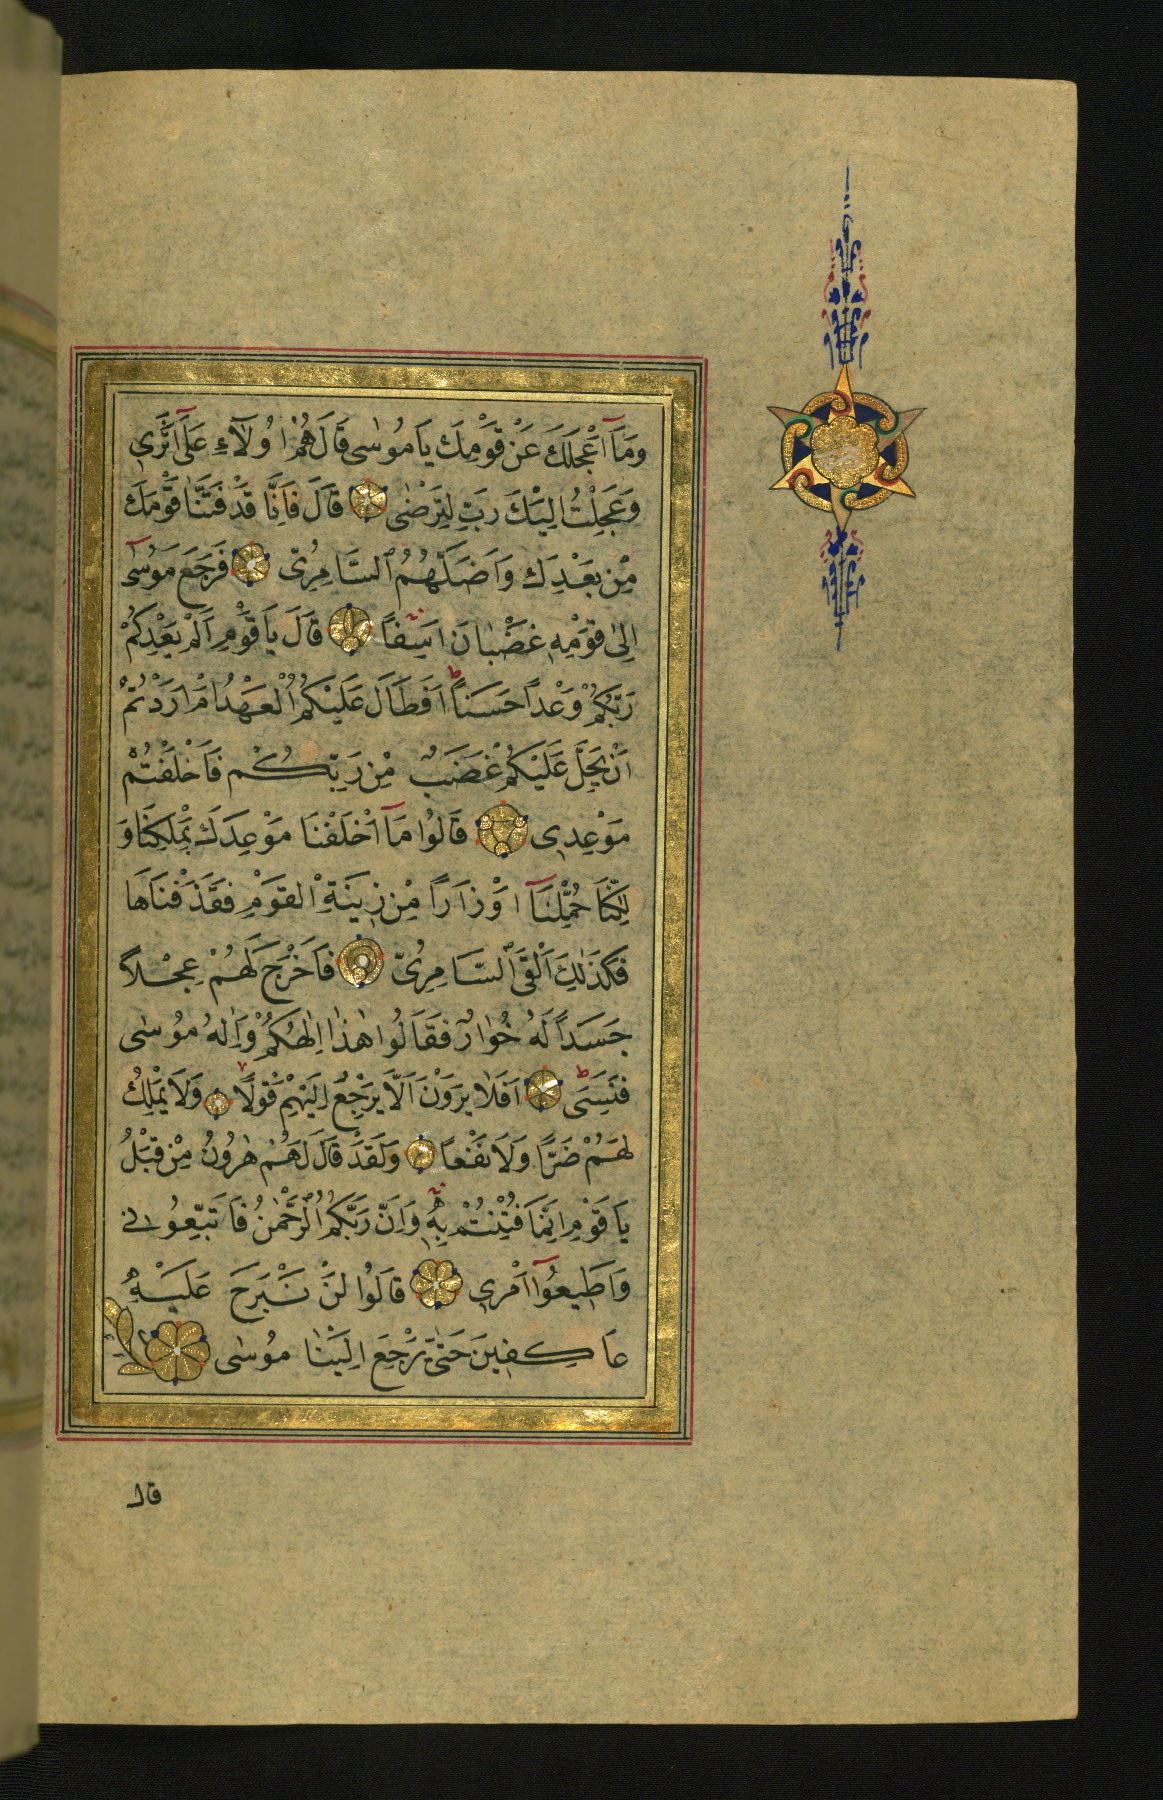 وَمَآ اَعْجَلَكَ عَنْ قَوْمِكَ يَا مُوسٰى قَالَ هُمْ اُولَآءِ عَلٰٓى اَثَرٖى
وَعَجِلْتُ اِلَيْكَ رَبِّ لِتَرْضٰى قَالَ فَاِنَّا قَدْ فَتَنَّا قَوْمَكَ
مِنْ بَعْدِكَ وَاَضَلَّهُمُ السَّامِرِىُّ فَرَجَعَ مُوسٰٓى
اِلٰى قَوْمِهٖ غَضْبَانَ اَسِفًا قَالَ يَا قَوْمِ اَلَمْ يَعِدْكُمْ
رَبُّكُمْ وَعْدًا حَسَنًا ط اَفَطَالَ عَلَيْكُمُ الْعَهْدُ اَمْ اَرَدْتُمْ
اَنْ يَحِلَّ عَلَيْكُمْ غَضَبٌ مِنْ رَبِّكُمْ فَاَخْلَفْتُمْ
مَوْعِدٖى قَالُوا مَآ اَخْلَفْنَا مَوْعِدَكَ بِمَلْكِنَا وَ
لٰكِنَّا حُمِّلْنَآ اَوْزَارًا مِنْ زِينَةِ الْقَوْمِ فَقَذَفْنَاهَا
فَكَذٰلِكَ اَلْقَى السَّامِرِىُّ فَاَخْرَجَ لَهُمْ عِجْلًا
جَسَدًا لَهُ خُوَارٌ فَقَالُوا هٰذَا اِلٰهُكُمْ وَاِلٰهُ مُوسٰى
فَنَسِىَ ط اَفَلَا يَرَوْنَ اَلَّا يَرْجِعُ اِلَيْهِمْ قَوْلًا وَلَا يَمْلِكُ
لَهُمْ ضَرًّا وَلَا نَفْعًا وَلَقَدْ قَالَ لَهُمْ هٰرُونُ مِنْ قَبْلُ
يَا قَوْمِ اِنَّمَا فُتِنْتُمْ بِهٖ وَاِنَّ رَبَّكُمُ الرَّحْمٰنُ فَاتَّبِعُونٖى
وَاَطِيعُوٓا اَمْرٖى قَالُوا لَنْ نَبْرَحَ عَلَيْهِ
عَاكِفِينَ حَتّٰى يَرْجِعَ اِلَيْنَا مُوسٰى
قال